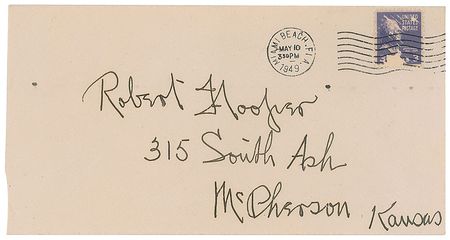 MIAMI BEACH, FLA.
MAY 10
3 30 PM
1949
UNITED
STATES
POSTAGE
Robert Hooper
315 South Ash
McPherson Kansas